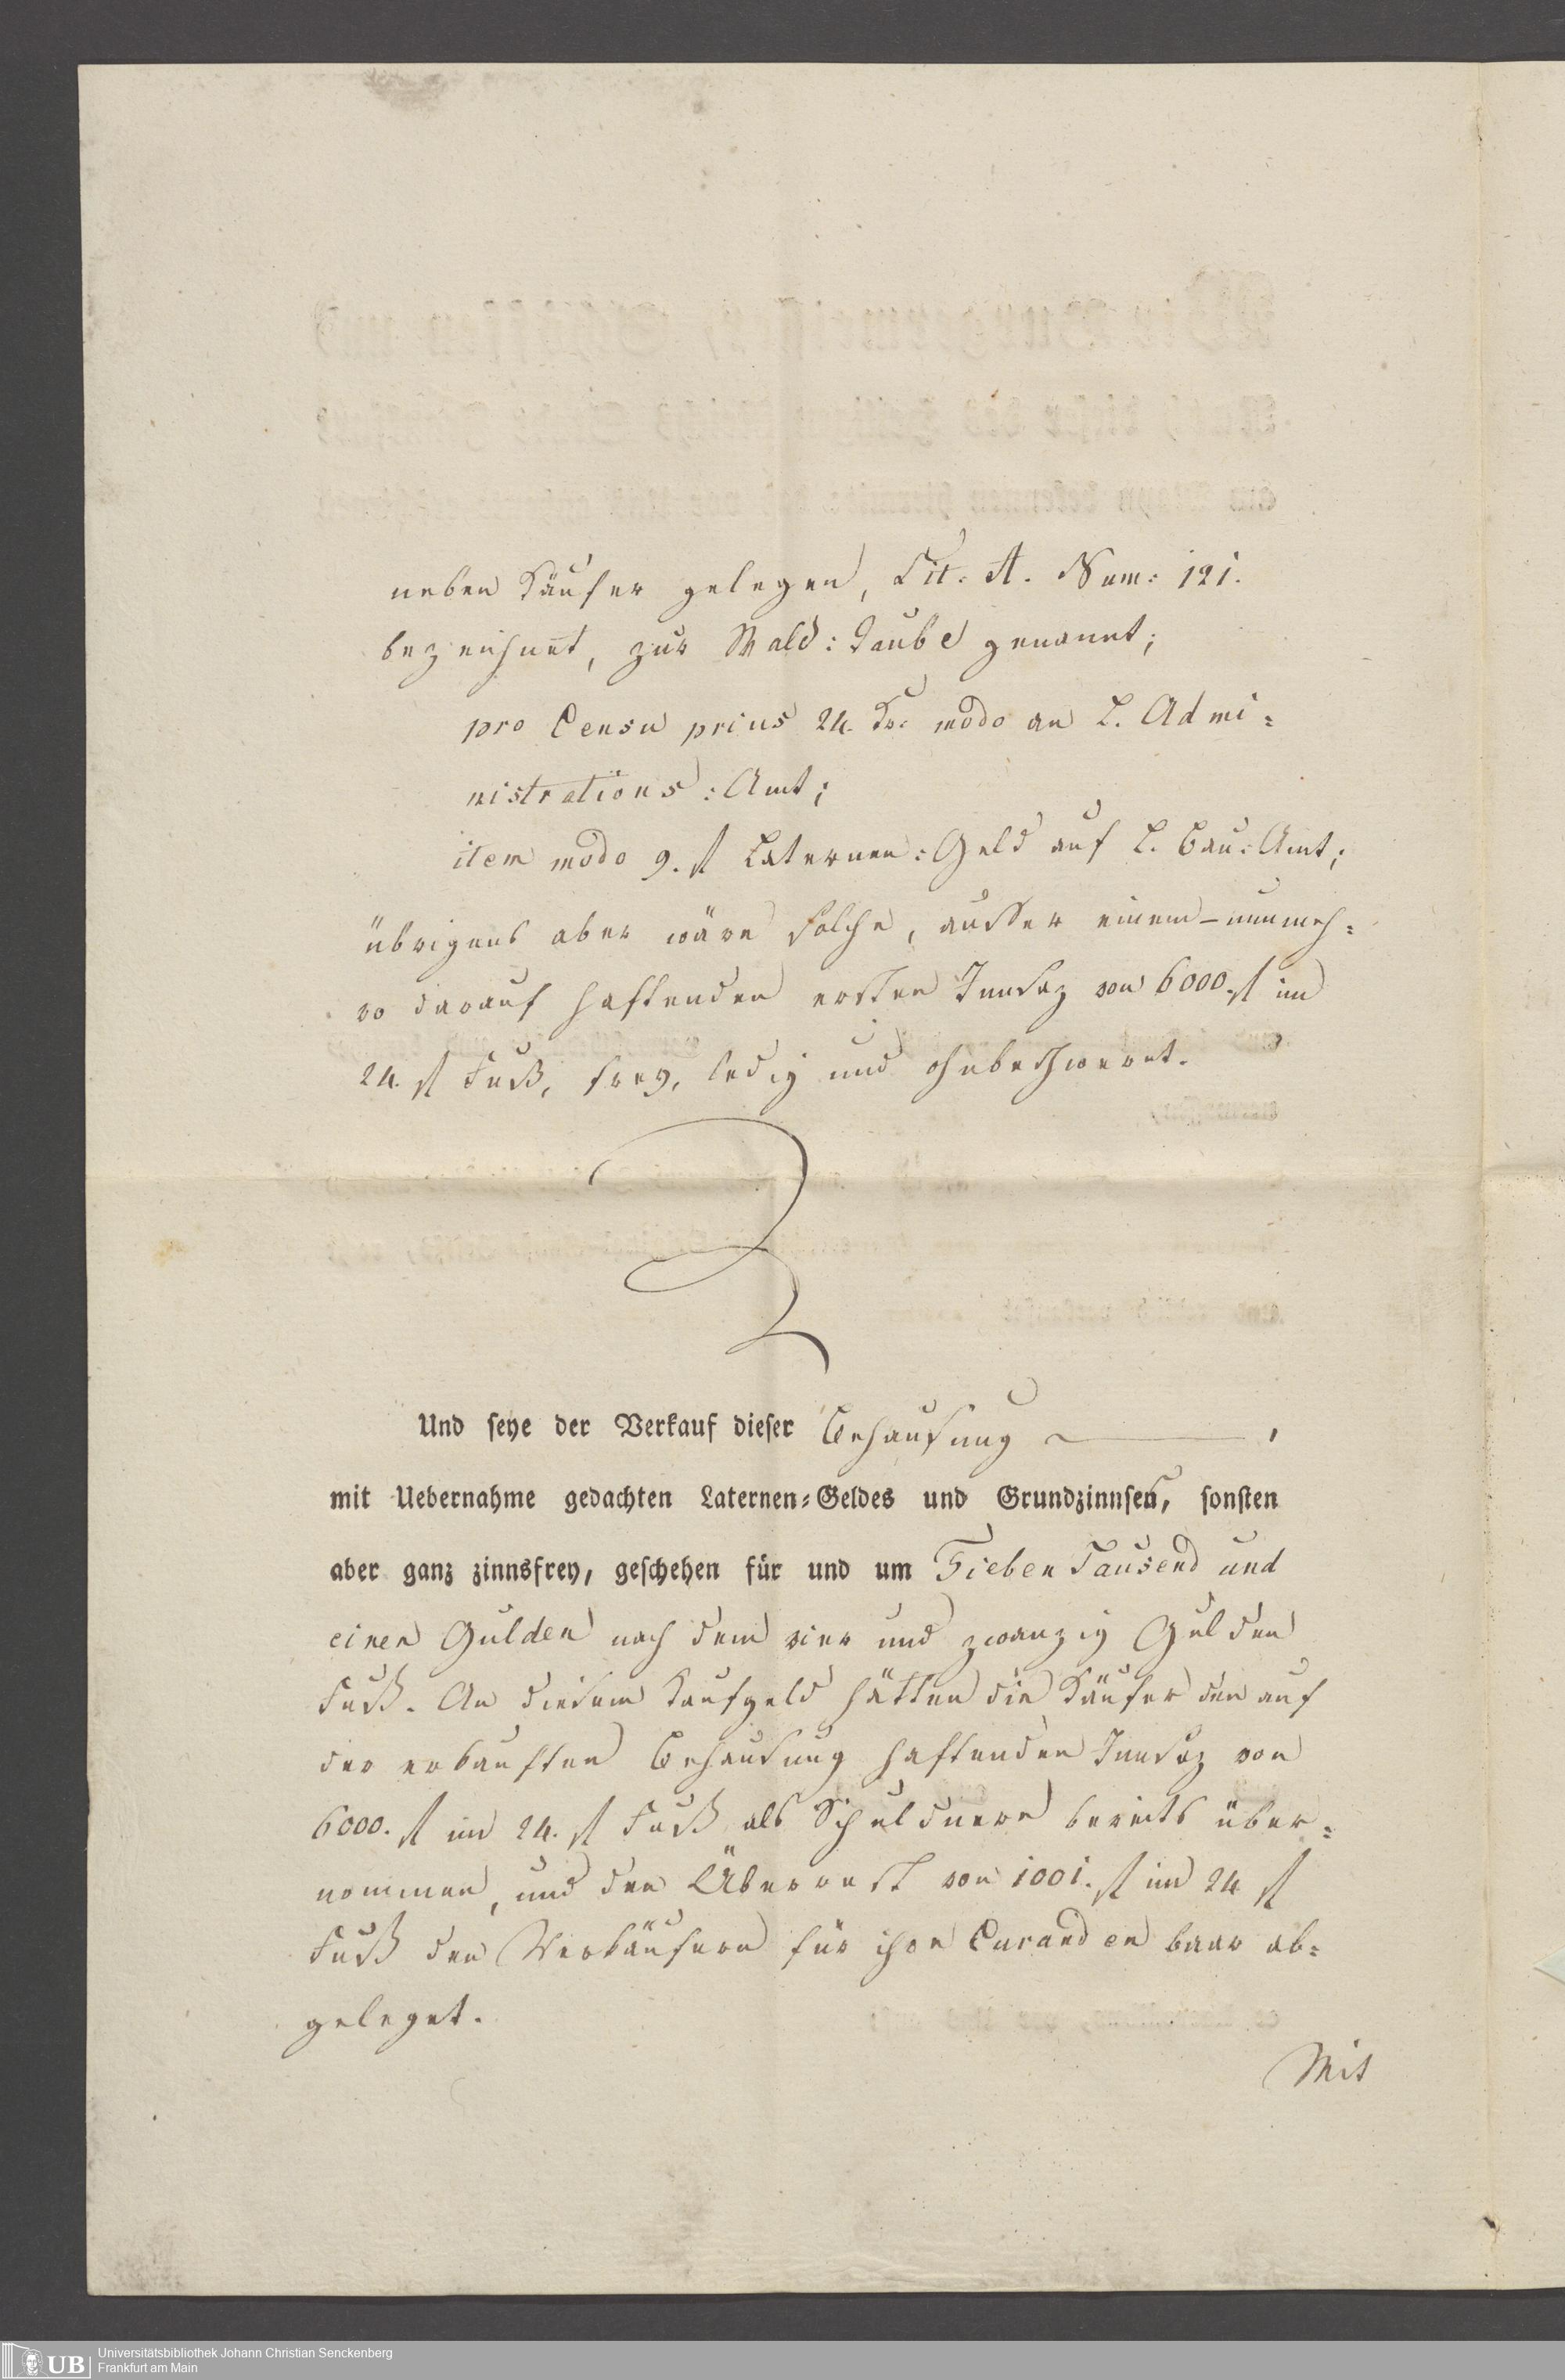 neben Käufer gelegen, Lit: A. Num: 121.
bezeichnet, zur Wald: Taube genannt;
pro Censu prius 24. Kr: modo an L. Admi=
nistrations: Amt;
item modo 9. fl Laternen: Geld auf L. Bau: Amt;
übrigens aber wäre solche, ausser einem - nunmeh=
ro darauf haftenden ersten Innsaz von 6000. fl im
24. fl Fuß, frey, ledig und ohnbeschweret.
Und seye der Verkauf dieser Behausung ,
mit Uebernahme gedachten Laternen=Geldes und Grundzinnses, sonsten
aber ganz zinnsfrey, geschehen für und um Sieben Tausend und
einen Gulden nach dem vier und zwanzig Gulden
Fuß. An diesem Kaufgeld hätten die Käufer den auf
der erkauften Behausung haftenden Innsaz von
6000. fl im 24. fl Fuß als Schuldnere bereits über=
nommen, und den Überrest von 1001. fl im 24 fl
Fuß den Verkäufern für ihre Curanden baar ab=
geleget.
Mit
UB
Universitätsbibliothek Johann Christian Senckenberg
Frankfurt am Main